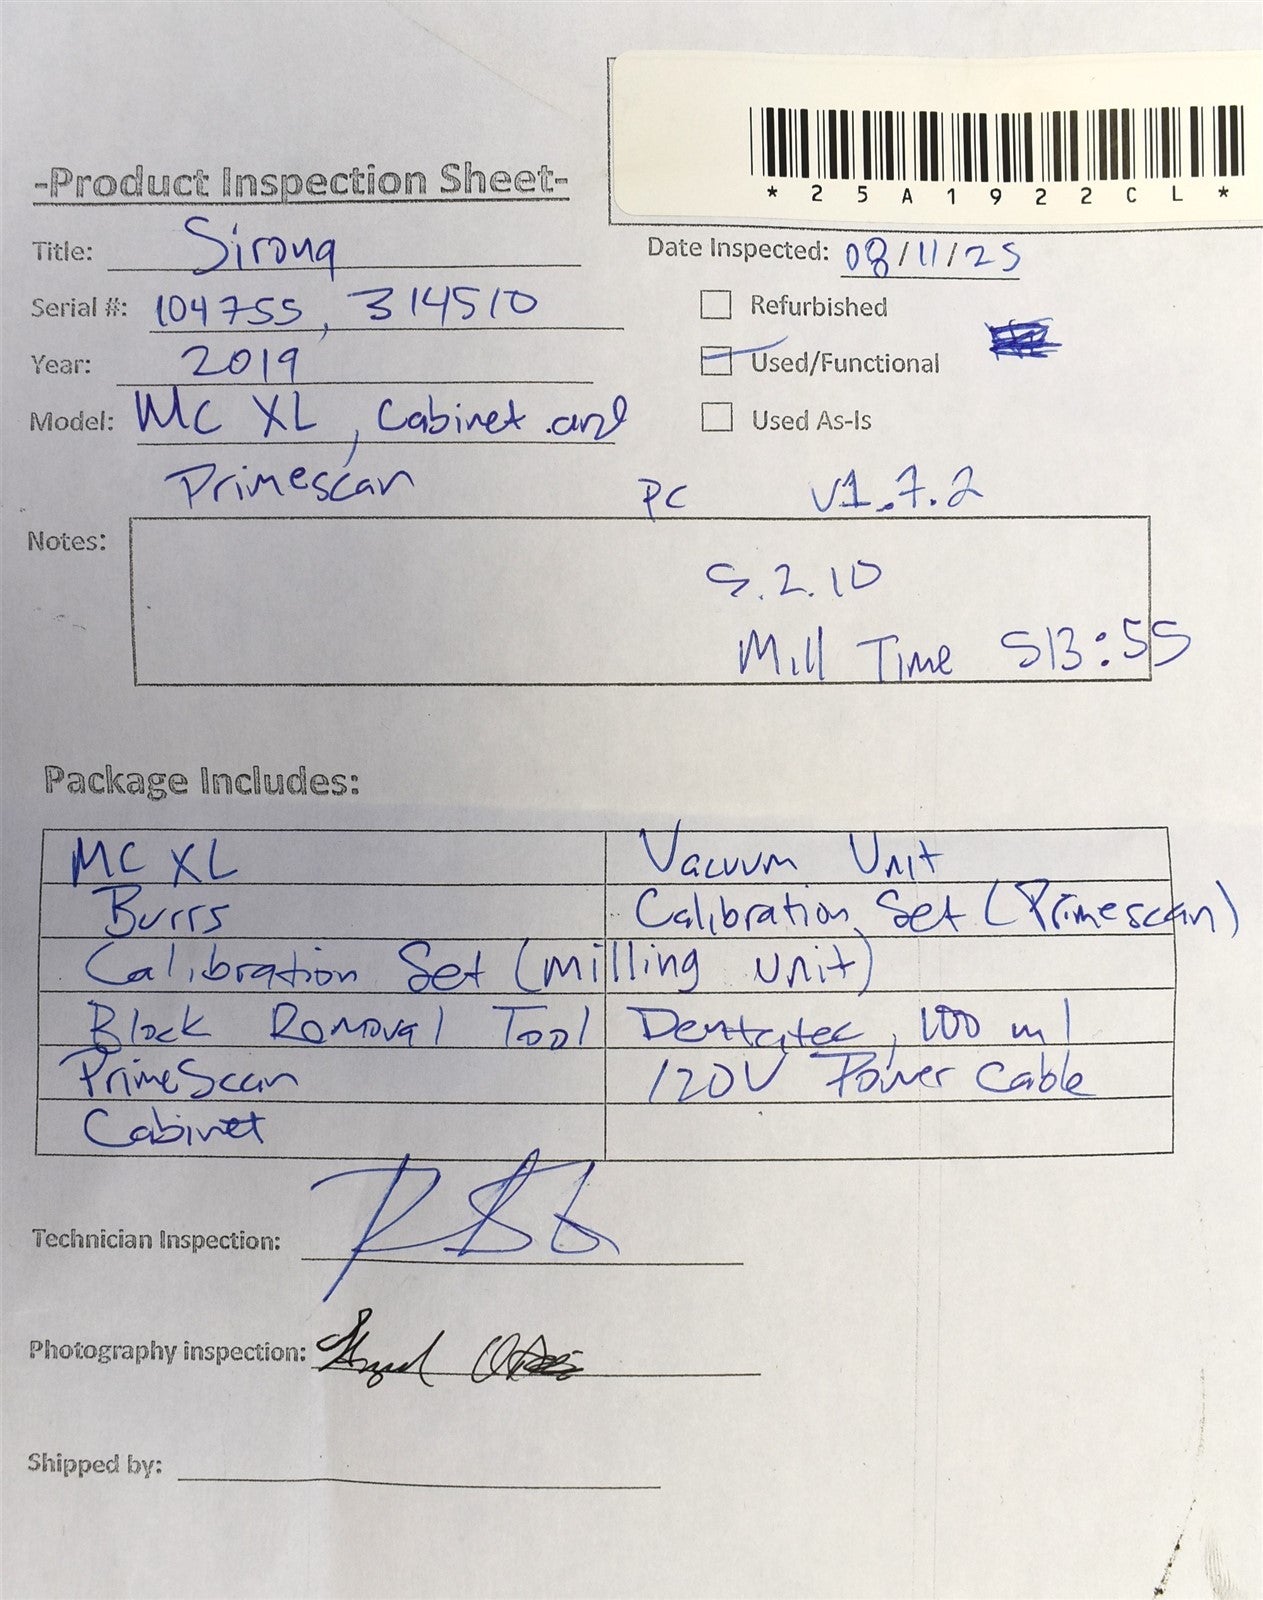 *25A1922CL*
-Product Inspection Sheet-
Title: Sirona
Date Inspected: 08/11/25
Serial #: 104755, 314510
Refurbished
Year: 2019
Used/Functional
Model: MC XL, Cabinet and
Used As-Is
Primescan
PC v1.7.2
Notes:
5.2.10
Mill Time 513:55
Package Includes:
MC XL
Vacuum Unit
Burrs
Calibration Set (Primescan)
Calibration Set (milling unit)
Block Removal Tool
Dentatec, 100 ml
PrimeScan
120V Power Cable
Cabinet
Technician Inspection:
Photography inspection:
Shipped by: